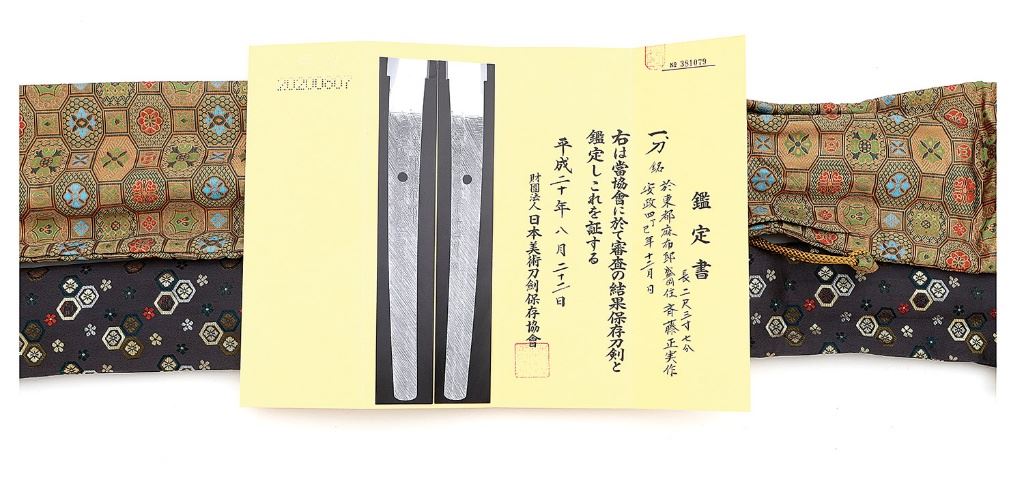 № 381079
鑑定書
一、刀 銘 於東都麻布邸鑿岡住 斉藤正実作
安政四丁巳年十二月日
長二尺三寸七分
右は當協會に於て審査の結果保存刀剣と
鑑定しこれを証する
平成二十年八月二十二日
財團法人日本美術刀剣保存協會
20200807